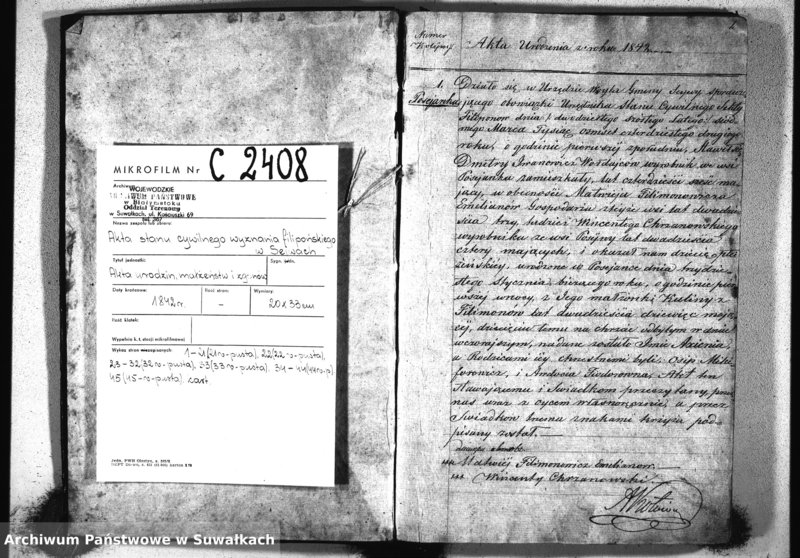 MIKROFILM Nr C 2408
Archiwum
WOJEWÓDZKIE
ARCHIWUM PAŃSTWOWE
w Białymstoku
Oddział Terenowy
w Suwałkach, ul. Kościuszki 69
Nazwa zespołu lub zbioru:
Akta stanu cywilnego wyznania filipońskiego
w Sejwach
Tytuł jednostki:
Sygn. ośrn.
Akta urodzin, małżeństw i zgonów
Daty krańcowe:
Ilość stron:
Wymiary:
1842r.
–
20x33cm
Ilość klatek:
Wypełnia k. t. stacji mikrofilmowej
Wykaz stron
1-21(21v-pusta), 22(22v-pusta),
23-32(32v-pusta), 33(33v-pusta), 34-44(44v-p)
45(45v-pusta)
2
Numer
Akta Urodzenia z roku 1842
1.
Posejanka
Działo się w Urzędzie Wójta Gminy Sejwy
obowiązki Urzędnika Stanu Cywilnego Sekty
Filiponow dnia dwudziestego szóstego Lutego
Marca Tysiąc osmset czterdziestego drugiego
roku, o godzinie pierwszej
Dmitry Iwanowicz wyrobnik we wsi
Posejanka zamieszkały, lat czterdzieści sześć ma-
jący, w obecności Matwieja Filimonowicza
Emilianow Gospodarza tejże wsi lat dwadzie-
ścia trzy, tudzież Wincentego Chrzanowskiego
wyrobnika ze wsi lat dwadzieścia
cztery mających, i okazał nam dziecię płci
żeńskiej, urodzone w Posejance dnia trzydzie-
stego Stycznia bieżącego roku, o godzinie pier-
wszej z Jego małżonki
Filimonow lat dwadzieścia dziewięć mają-
cej, dziecięciu temu na chrzcie odbytym w dniu
wczorajszym, nadane zostało Imie Axienia
a Rodzicami jej chrzestnemi byli, Osip
i Awdocia Fiedorowna, Akt ten
Stawającemu i Świadkom przeczytany, przez
nas wraz z Ojcem a przez
Świadków znakami krzyża pod-
pisany został. —
+++ Matwiéj Filimonowicz Emilianow.
+++ Wincenty Chrzanowski
Archiwum Państwowe w Suwałkach